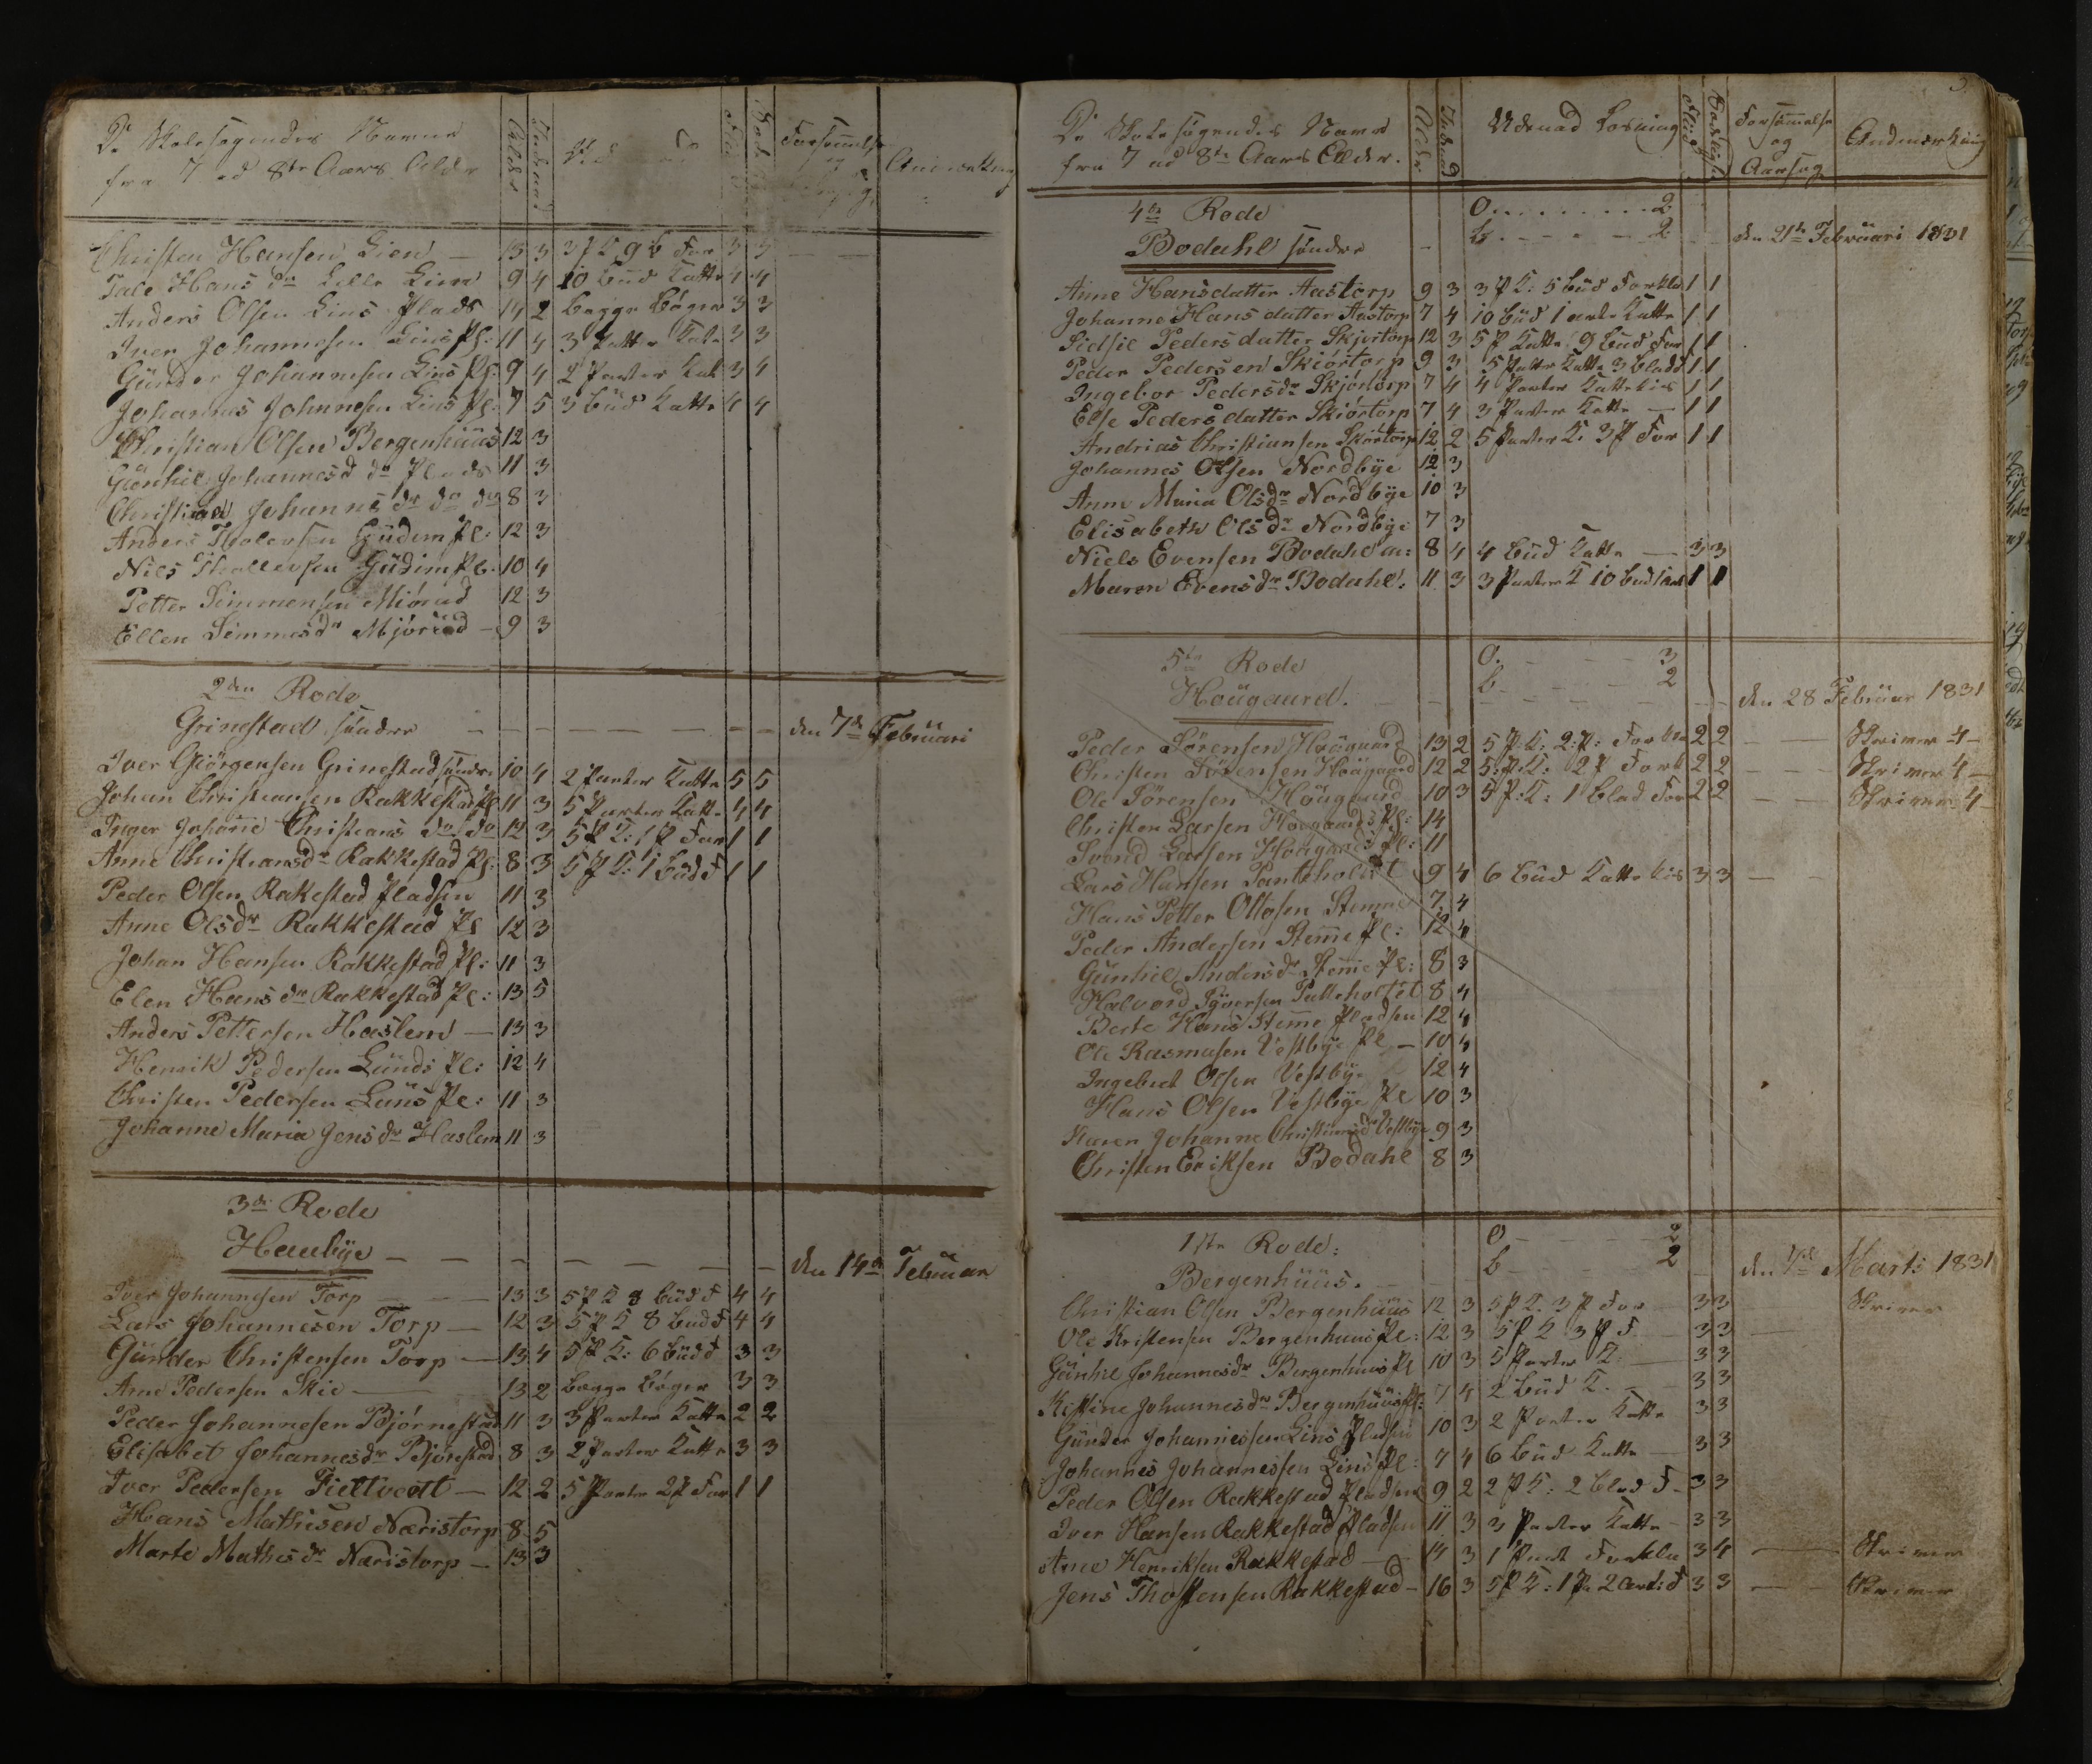 De Skolesøgendes Navne
fra 7 ad 8de Aars Alder
Alder
Forsømmelse
og
Christen Hansen Lien — 13 3 3 P K 9 b For 3 3
Tale Hans dr Lille Lien 9 4 10 bud Katte 4 4
Anders Olsen Liens Plads 14 2 begge bøger 3 3
Iver Johannesen Liens Pl: 11 4 3 Katte 3 3
Günder Johannesen Liens Pl: 9 4 2 Parter Kat 3 4
Johannes Johannesen Liens Pl: 7 5 3 büd Katte 4 4
Christian Olsen Bergenhüüs 12 3
Günhil Johannesd do Plads 11 3
Christian Johannes dr do do 8 3
Anders Tholevsen Güdim Pl: 12 3
Niels Thollevsen Güdim Pl. 10 4
Petter Simmensen Miørud 12 3
Ellen Simmesdr Mjørüd — 9 3
2den Rode
Grinestad søndre
den 7de Februari
Iver Giörgensen Grinestad søndre 10 4 2 Parter Katte 5 5
Johan Christiansen Rakkestad Pl 11 3 5 Parter Katte 4 4
Inger Johanne Christians dr do 14 3 5 P K: 1 P For 1 1
Anne Christiansdr Rakkestad Pl: 8 3 5 P K: 1 büd F 1 1
Peder Olsen Rakestad Pladsen 11 3
Anne Olsdr Rakkestad Pl 12 3
Johan Hansen Rakkestad Pl: 11 3
Elen Hans dr Rakkestad Pl: 13 5
Anders Pettersen Haslem — 13 3
Henrik Pedersen Lunds Pl: 12 4
Christen Pedersen Luns Pl: 11 3
Johanne Maria Jensdr Haslem 11 3
3de Rode
Haubÿe
den 14de Februar
Iver Johannesen Torp 13 3 5 P K 8 büd F 4 4
Lars Johannesen Torp — 12 3 5 P K 8 bud F 4 4
Günder Christensen Torp — 13 4 5 P K: 6 büd F 3 3
Arne Pedersen Skie 13 2 begge bøger 3 3
Peder Johannesen Bjørnestad 11 3 3 Parter Katte 2 2
Elisabet Johannesdr Bjørestad 8 3 2 Parter Katte 3 3
Iver Pedersen Fieltvedt — 12 2 5 Parter 2 P For 1 1
Hans Mathisen Næristorp 8 5
Marte Mathisdr Næristorp — 13 3
3
De Skolesøgendes Navne
fra 7 ad 8de Aars Alder.
Alder
Udenad Læsning
Flid
Forsømmelse
og
Aarsag
Andmærkning
4de Rode
Bodahl søndre
O. 2
b 2
den 21de Februari 1831
Anne Hansdatter Aastorp 9 3 3 P K: 5 büd Forkla 1 1
Johanne Hans datter Aastorp 7 4 10 büd 1 art Katte 1 1
Sidsil Peders datter Skjørtorp 12 3 5 P Katte 9 büd For 1 1
Peder Pedersen Skiørtorp 9 3 5 Parter Katte 3 blad 1 1
Ingebor Pedersdr Skjørtorp 7 4 4 Parter Kattekies 1 1
Else Peders datter Skiørtorp 7 4 3 Parter Katte — 1 1
Andrias Christiansen Skiørtorp 12 2 5 Parter K: 3 P For 1 1
Johannes Olsen Nordbÿe 12 3
Anne Maria Olsdr Nordbÿe 10 3
Elisabeth Ols dr Nordbÿe 7 3
Niels Evensen Bodahl 8 4 4 büd Katte — 3 3
Maren Evensdr Bodahl: 11 3 3 Parter K 10 bud 1 art 1 1
5te Rode
Hoügaard.
O. 3
b 2
den 28 Februar 1831
Peder Sørensen Hoügaard 13 2 5 P: K: 2: P: Forkla 2 2 Skriver 4
Christen Sørensen Hoügaard 12 2 5: P: K: 2 P Fork 2 2 Skriver 4
Ole Sørensen Hoügaard 10 3 5 P: K: 1 blad For 2 2 Skriver 4
Christen Larsen Hoügaards Pl: 14
Svend Larsen Hoügaards Pl: 11
Lars Hansen Panteholtet 9 4 6 büd Kattekis 3 3
Hans Petter Ottosen Stemme 7 4
Peder Andersen Steme Pl: 12 4
Günhil Andersdr Steme Pl: 8 3
Halvord Syversen Putteholtet 8 4
Berte Hans Steme Pladsen 12 4
Ole Rasmusen Vestbÿe Pl — 10 4
Ingebret Olsen Vestbÿe 12 4
Hans Olsen Vestbÿe Pl 10 3
Karen Johanne Christiansdr Vestbÿe 9 3
Christen Eriksen Bodahl 8 3
1ste Rode:
Bergenhüüs.
O
b 2
den 7de Marts 1831
Christian Olsen Bergenhüüs 12 3 5 P K: 3 P For 3 3 Skriver
Ole Kristensen Bergenhuus Pl: 12 3 5 P K 3 P F 3 3
Günhil Johannesdr Bergenhuus Pl 10 3 5 Parter K: 3 3
Kistine Johannesdr Bergenhüüs Pl: 7 4 2 büd K. 3 3
Günder Johannessen Liens Pladsen 10 3 2 Parter Katte 3 3
Johannes Johannessen Liens Pl: 7 4 6 büd Katte — 3 3
Peder Olsen Rakkestad Pladsen 9 2 2 P K: 2 blad F 3 3
Iver Hansen Rakkestad Pladsen 11 3 3 Parter Katte 3 3
Arne Henriksen Rakkestad 14 3 1 Part Forkla 3 4 Skriver
Jens Thostensen Rakkestad — 16 3 5 P K: 1 P 2 art: F 3 3 Skriver